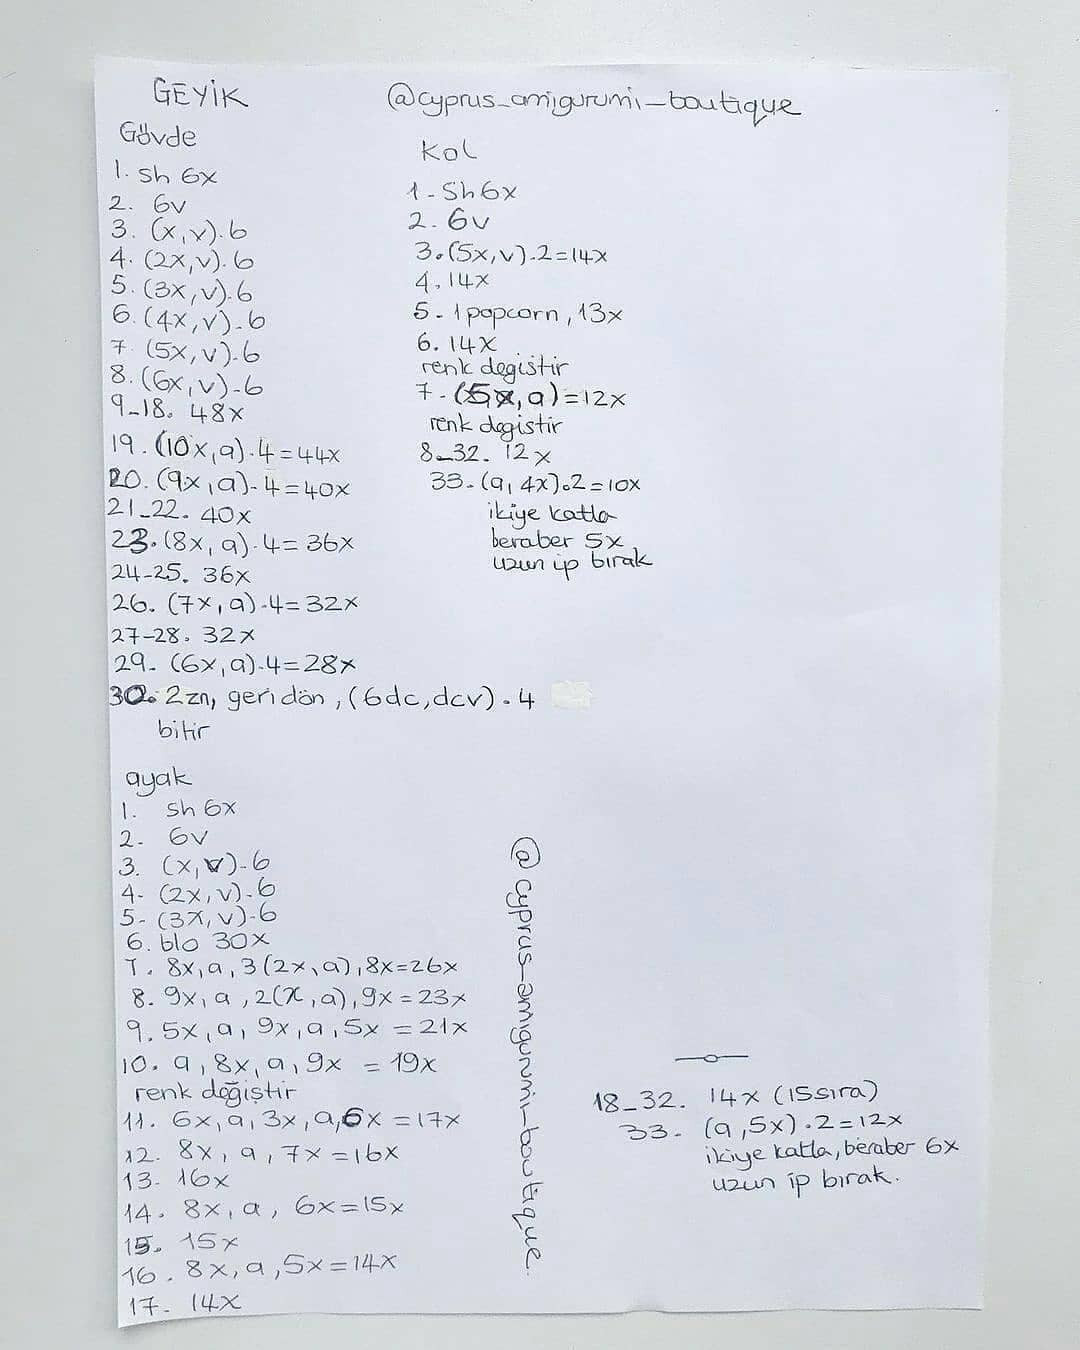 GEYİK
@cyprus_amigurumi_boutique
Gövde
1. sh 6x
2. 6v
3. (x,v).6
4. (2x,v).6
5. (3x,v).6
6. (4x,v).6
7. (5x,v).6
8. (6x,v).6
9_18. 48x
19. (10x,a).4=44x
20. (9x,a).4=40x
21_22. 40x
23. (8x,a).4=36x
24-25. 36x
26. (7x,a).4=32x
27-28. 32x
29. (6x,a).4=28x
30. 2zn, geri dön, (6dc,dcv).4
bitir
Kol
1-Sh6x
2.6v
3.(5x,v).2=14x
4.14x
5-1popcorn,13x
6.14x
renk degistir
7-(5x,a)=12x
renk degistir
8_32. 12x
33-(a,4x).2=10x
ikiye katla
beraber 5x
uzun ip bırak
ayak
1. sh 6x
2- 6v
3. (x,v)-6
4- (2x,v).6
5- (3x,v)-6
6. blo 30x
7. 8x,a,3(2x,a),8x=26x
8. 9x,a,2(x,a),9x=23x
9. 5x,a,9x,a,5x =21x
10. a,8x,a,9x = 19x
renk değiştir
11. 6x,a,3x,a,6x=17x
12. 8x,a,7x=16x
13- 16x
14. 8x,a,6x=15x
15. 15x
16. 8x,a,5x=14x
17- 14x
@cyprus_amigurumi_boutique
18_32. 14x (15sıra)
33- (a,5x).2=12x
ikiye katla, beraber 6x
uzun ip bırak.